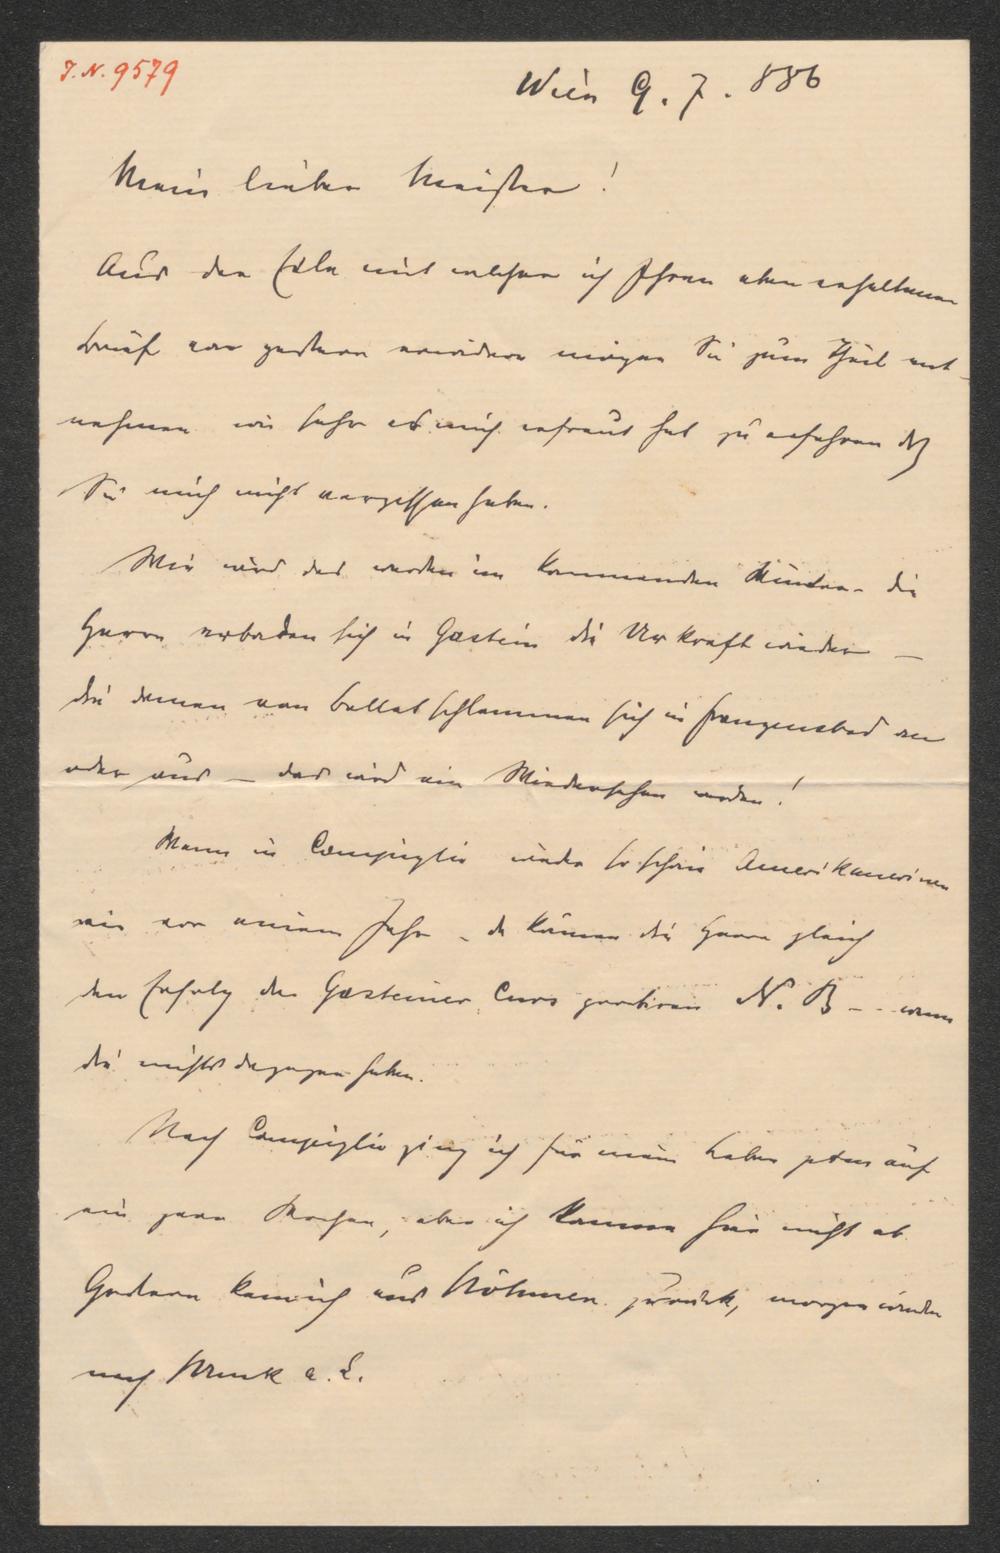 J. N. 9579
Wien 9. 7. 886
Mein lieber Meister!
Aus der Eile mit welcher ich Ihren eben erhaltenen
Brief von gestern erwidere mögen Sie zum Theil ent-
nehmen wie sehr es mich erfreut hat zu erfahren dß
Sie mich nicht vergessen haben.
Wie wird das werden im kommenden Winter - die
Herrn erbaden sich in Gastein die Urkraft wieder —
die Damen vom Ballet schlammen sich in Franzensbad ein
oder aus — das wird ein Wiedersehen werden!
Wenn in Campiglio wieder so schöne Amerikanerinen
wie vor einem Jahr - da können die Herrn gleich
den Erfolg der Gasteiner Curs probiren N. B - - wenn
die nichts dagegen haben.
Nach Campiglio ging ich für mein Leben gern auf
ein paar Wochen, aber ich komme hier nicht ab
Gestern kam ich aus Böhmen zurück, morgen wieder
nach Bruck a. L.